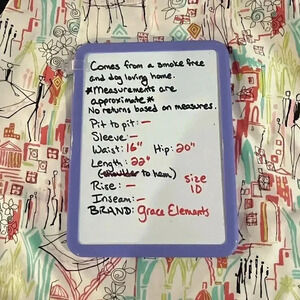 Comes from a smoke free
and dog loving home.
*Measurements are
approximate*
No returns based on measures.
Pit to pit: —
Sleeve: —
Waist: 16" Hip: 20"
Length: 22"
(shoulder to hem)
Rise: — size
Inseam: — 10
BRAND: Grace Elements